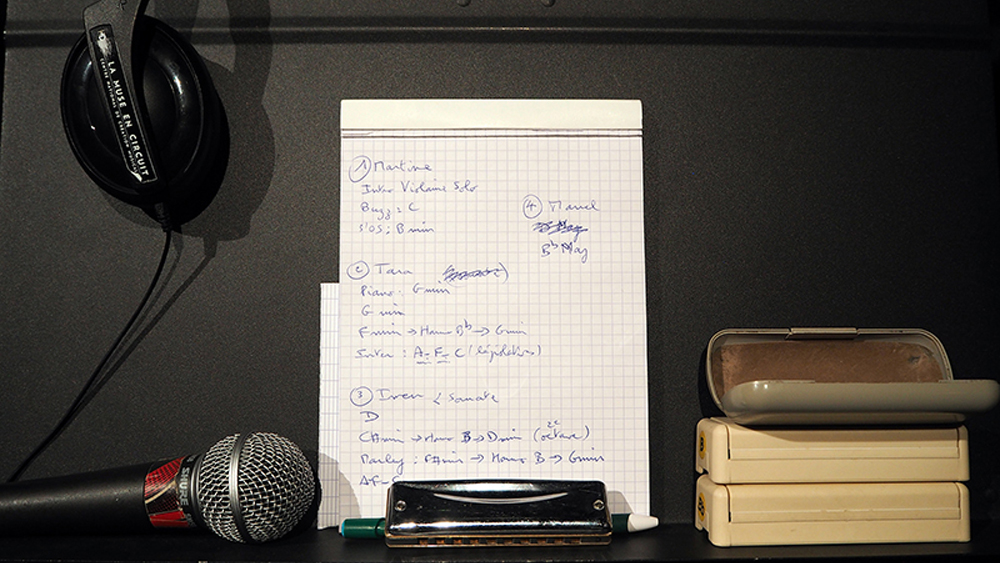 LA MUSE EN CIRCUIT
CENTRE NATIONAL DE CRÉATION MUSICALE
① Martine
Intro Violaine Solo
Bugg : C
SOS : B min
④
Bb Maj
② Tara
Piano : G min
G min
F min → Harmo Bb → G min
Inter : A- F- C (législation)
③ Iren
D
C# min → Harmo B → D min (octave)
Marley : F# min → Harmo B → G min
AF-
SHURE